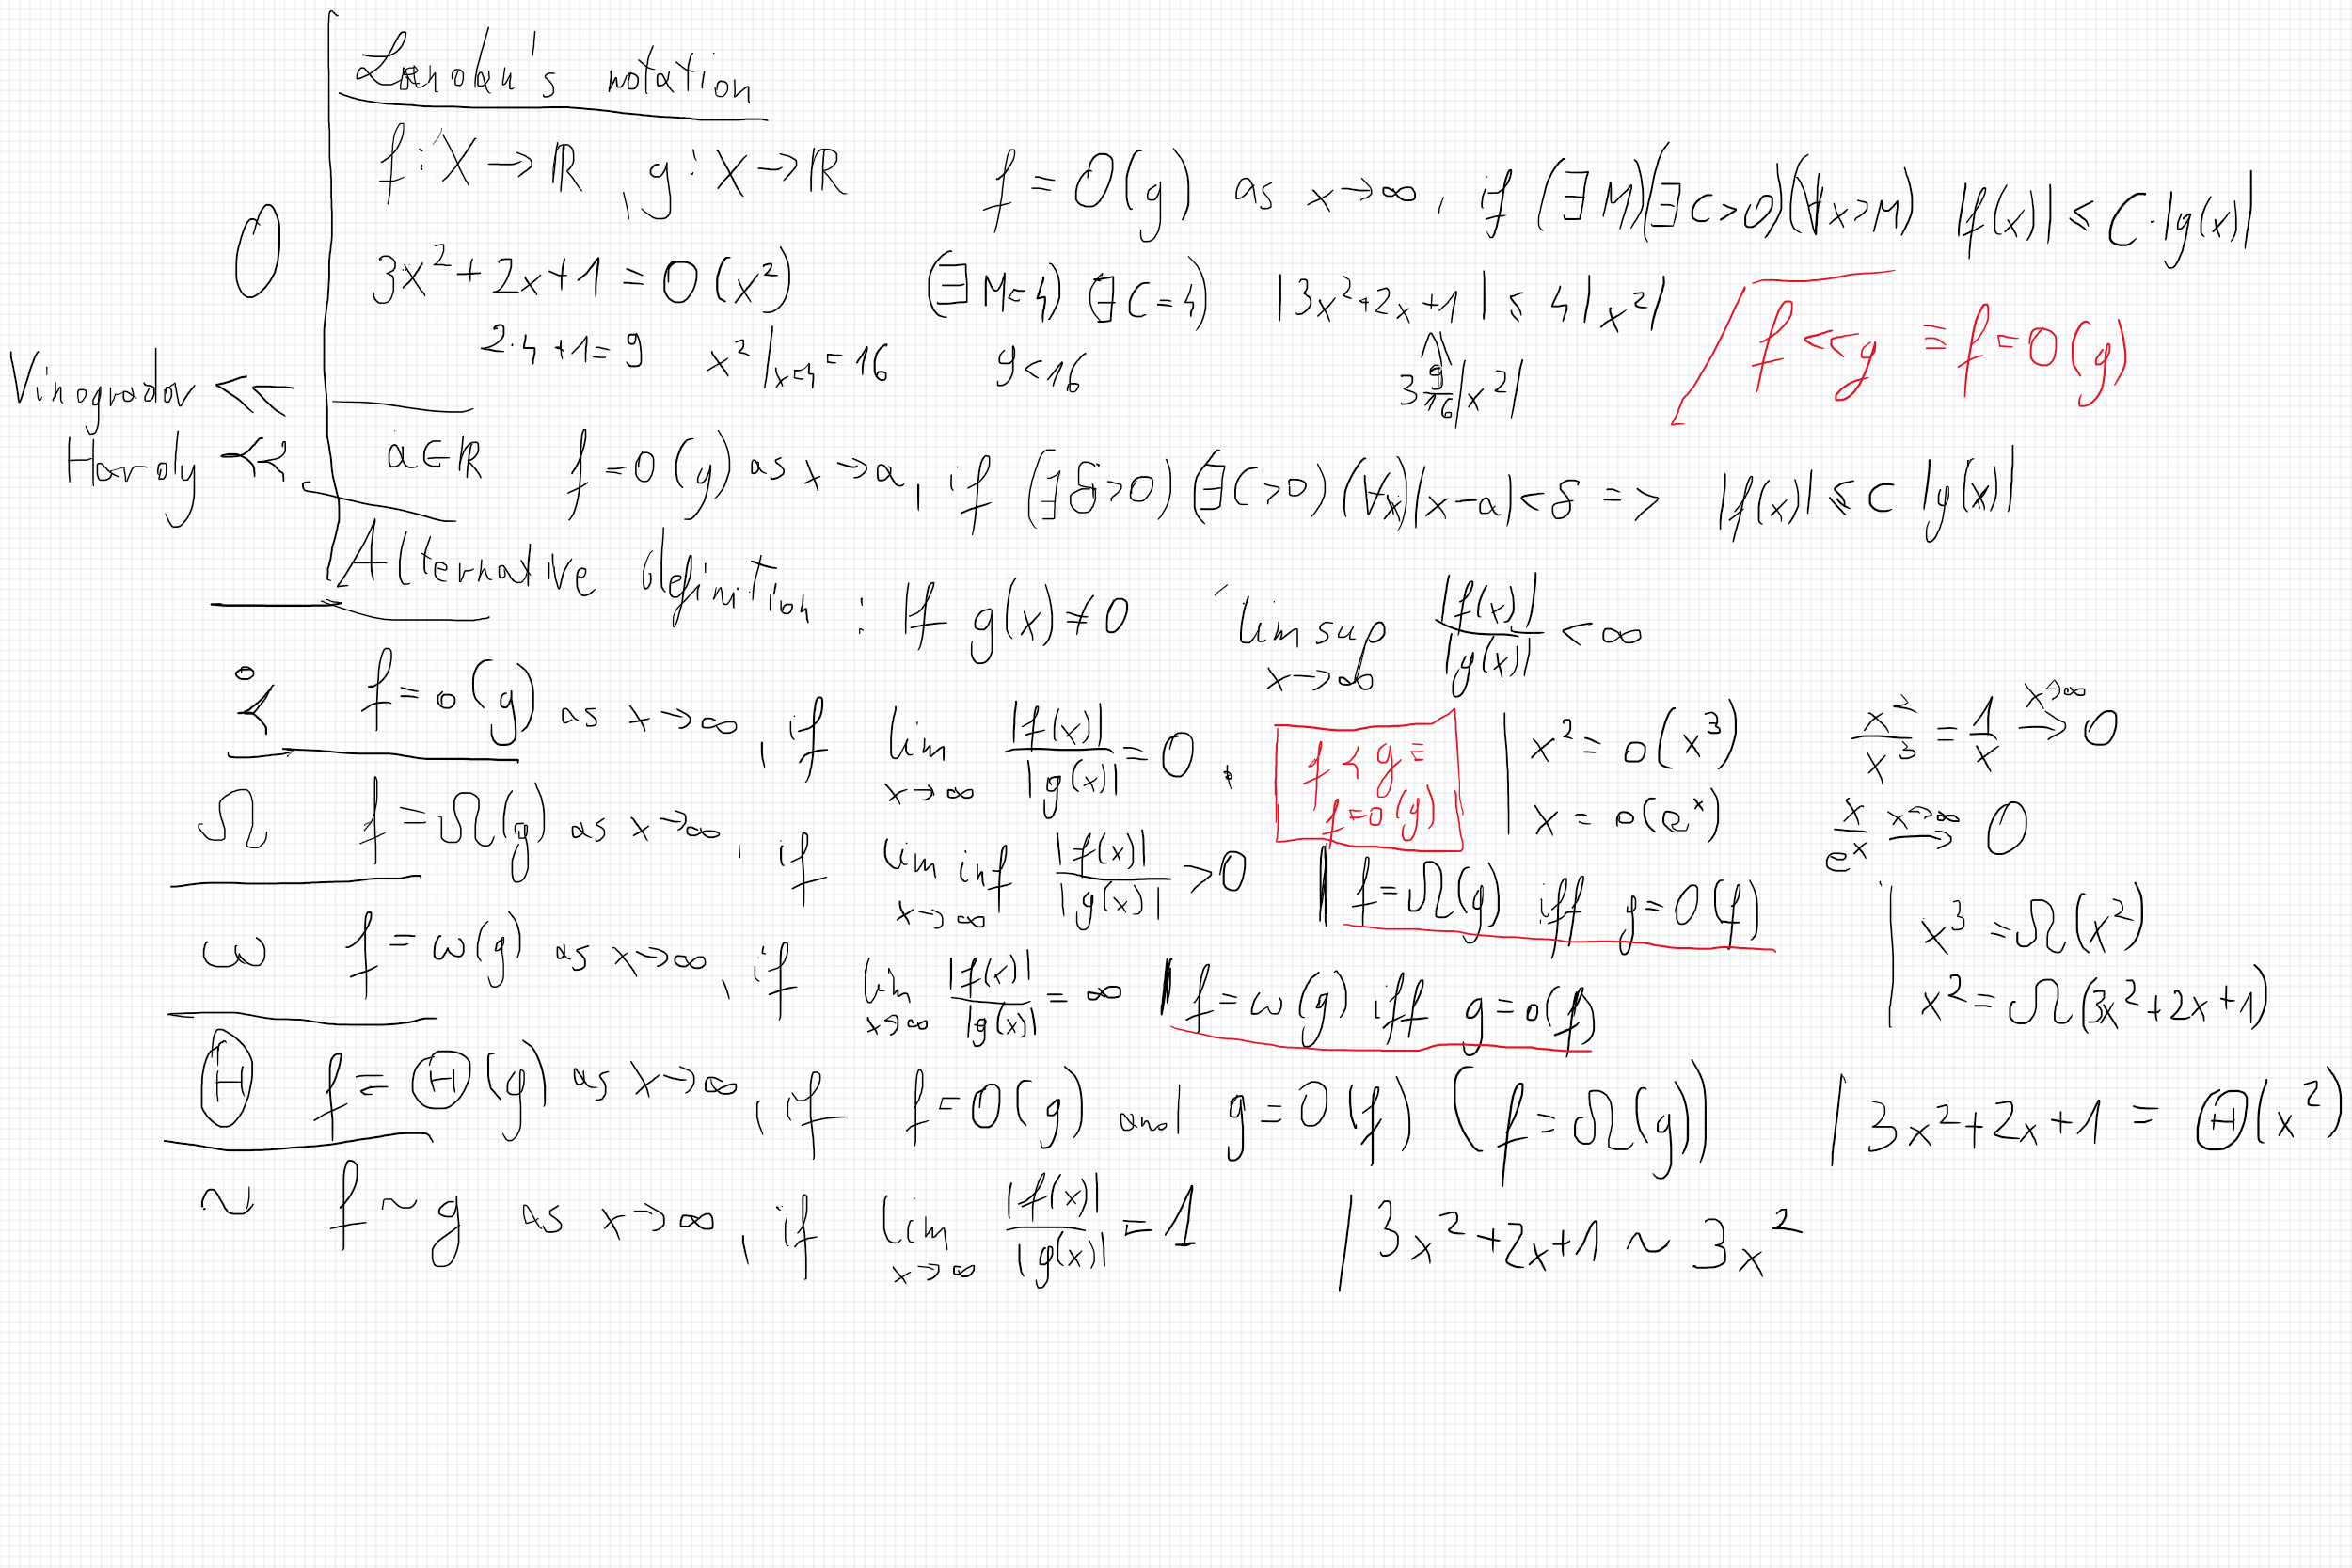 Landau's notation
f : X → ℝ , g : X → ℝ f = O(g) as x → ∞, if (∃ M)(∃ C > 0)(∀ x > M) |f(x)| ≤ C·|g(x)|
O
3x² + 2x + 1 = O(x²) (∃ M = 4) (∃ C = 4) |3x² + 2x + 1| ≤ 4|x²|
f << g ≡ f = O(g)
2·4 + 1 = 9 x²|ₓ₌₄ = 16 9 < 16 3 9/16 |x²|
Vinogradov <<
Hardy ≼
a ∈ ℝ f = O(g) as x → a, if (∃ δ > 0) (∃ C > 0) (∀ x) |x - a| < δ => |f(x)| ≤ C |g(x)|
Alternative definition : If g(x) ≠ 0 lim sup x → ∞ |f(x)|/|g(x)| < ∞
≺ f = o(g) as x → ∞, if lim x → ∞ |f(x)|/|g(x)| = 0.
f ≺ g ≡
f = o(g)
x² = o(x³) x²/x³ = 1/x x→∞ → 0
x = o(eˣ) x/eˣ x→∞ → 0
Ω f = Ω(g) as x → ∞, if lim inf x → ∞ |f(x)|/|g(x)| > 0 f = Ω(g) iff g = O(f)
x³ = Ω(x²)
x² = Ω(3x² + 2x + 1)
ω f = ω(g) as x → ∞, if lim x → ∞ |f(x)|/|g(x)| = ∞ f = ω(g) iff g = o(f)
Θ f = Θ(g) as x → ∞, if f = O(g) and g = O(f) (f = Ω(g)) 3x² + 2x + 1 = Θ(x²)
~ f ~ g as x → ∞, if lim x → ∞ |f(x)|/|g(x)| = 1 3x² + 2x + 1 ~ 3x²